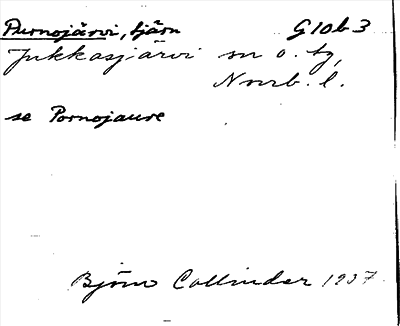 Purnojärvi, tjärn G10b3
Jukkasjärvi sn o. tg,
Norrb. l.
se Pornojaure
Björn Collinder 1937